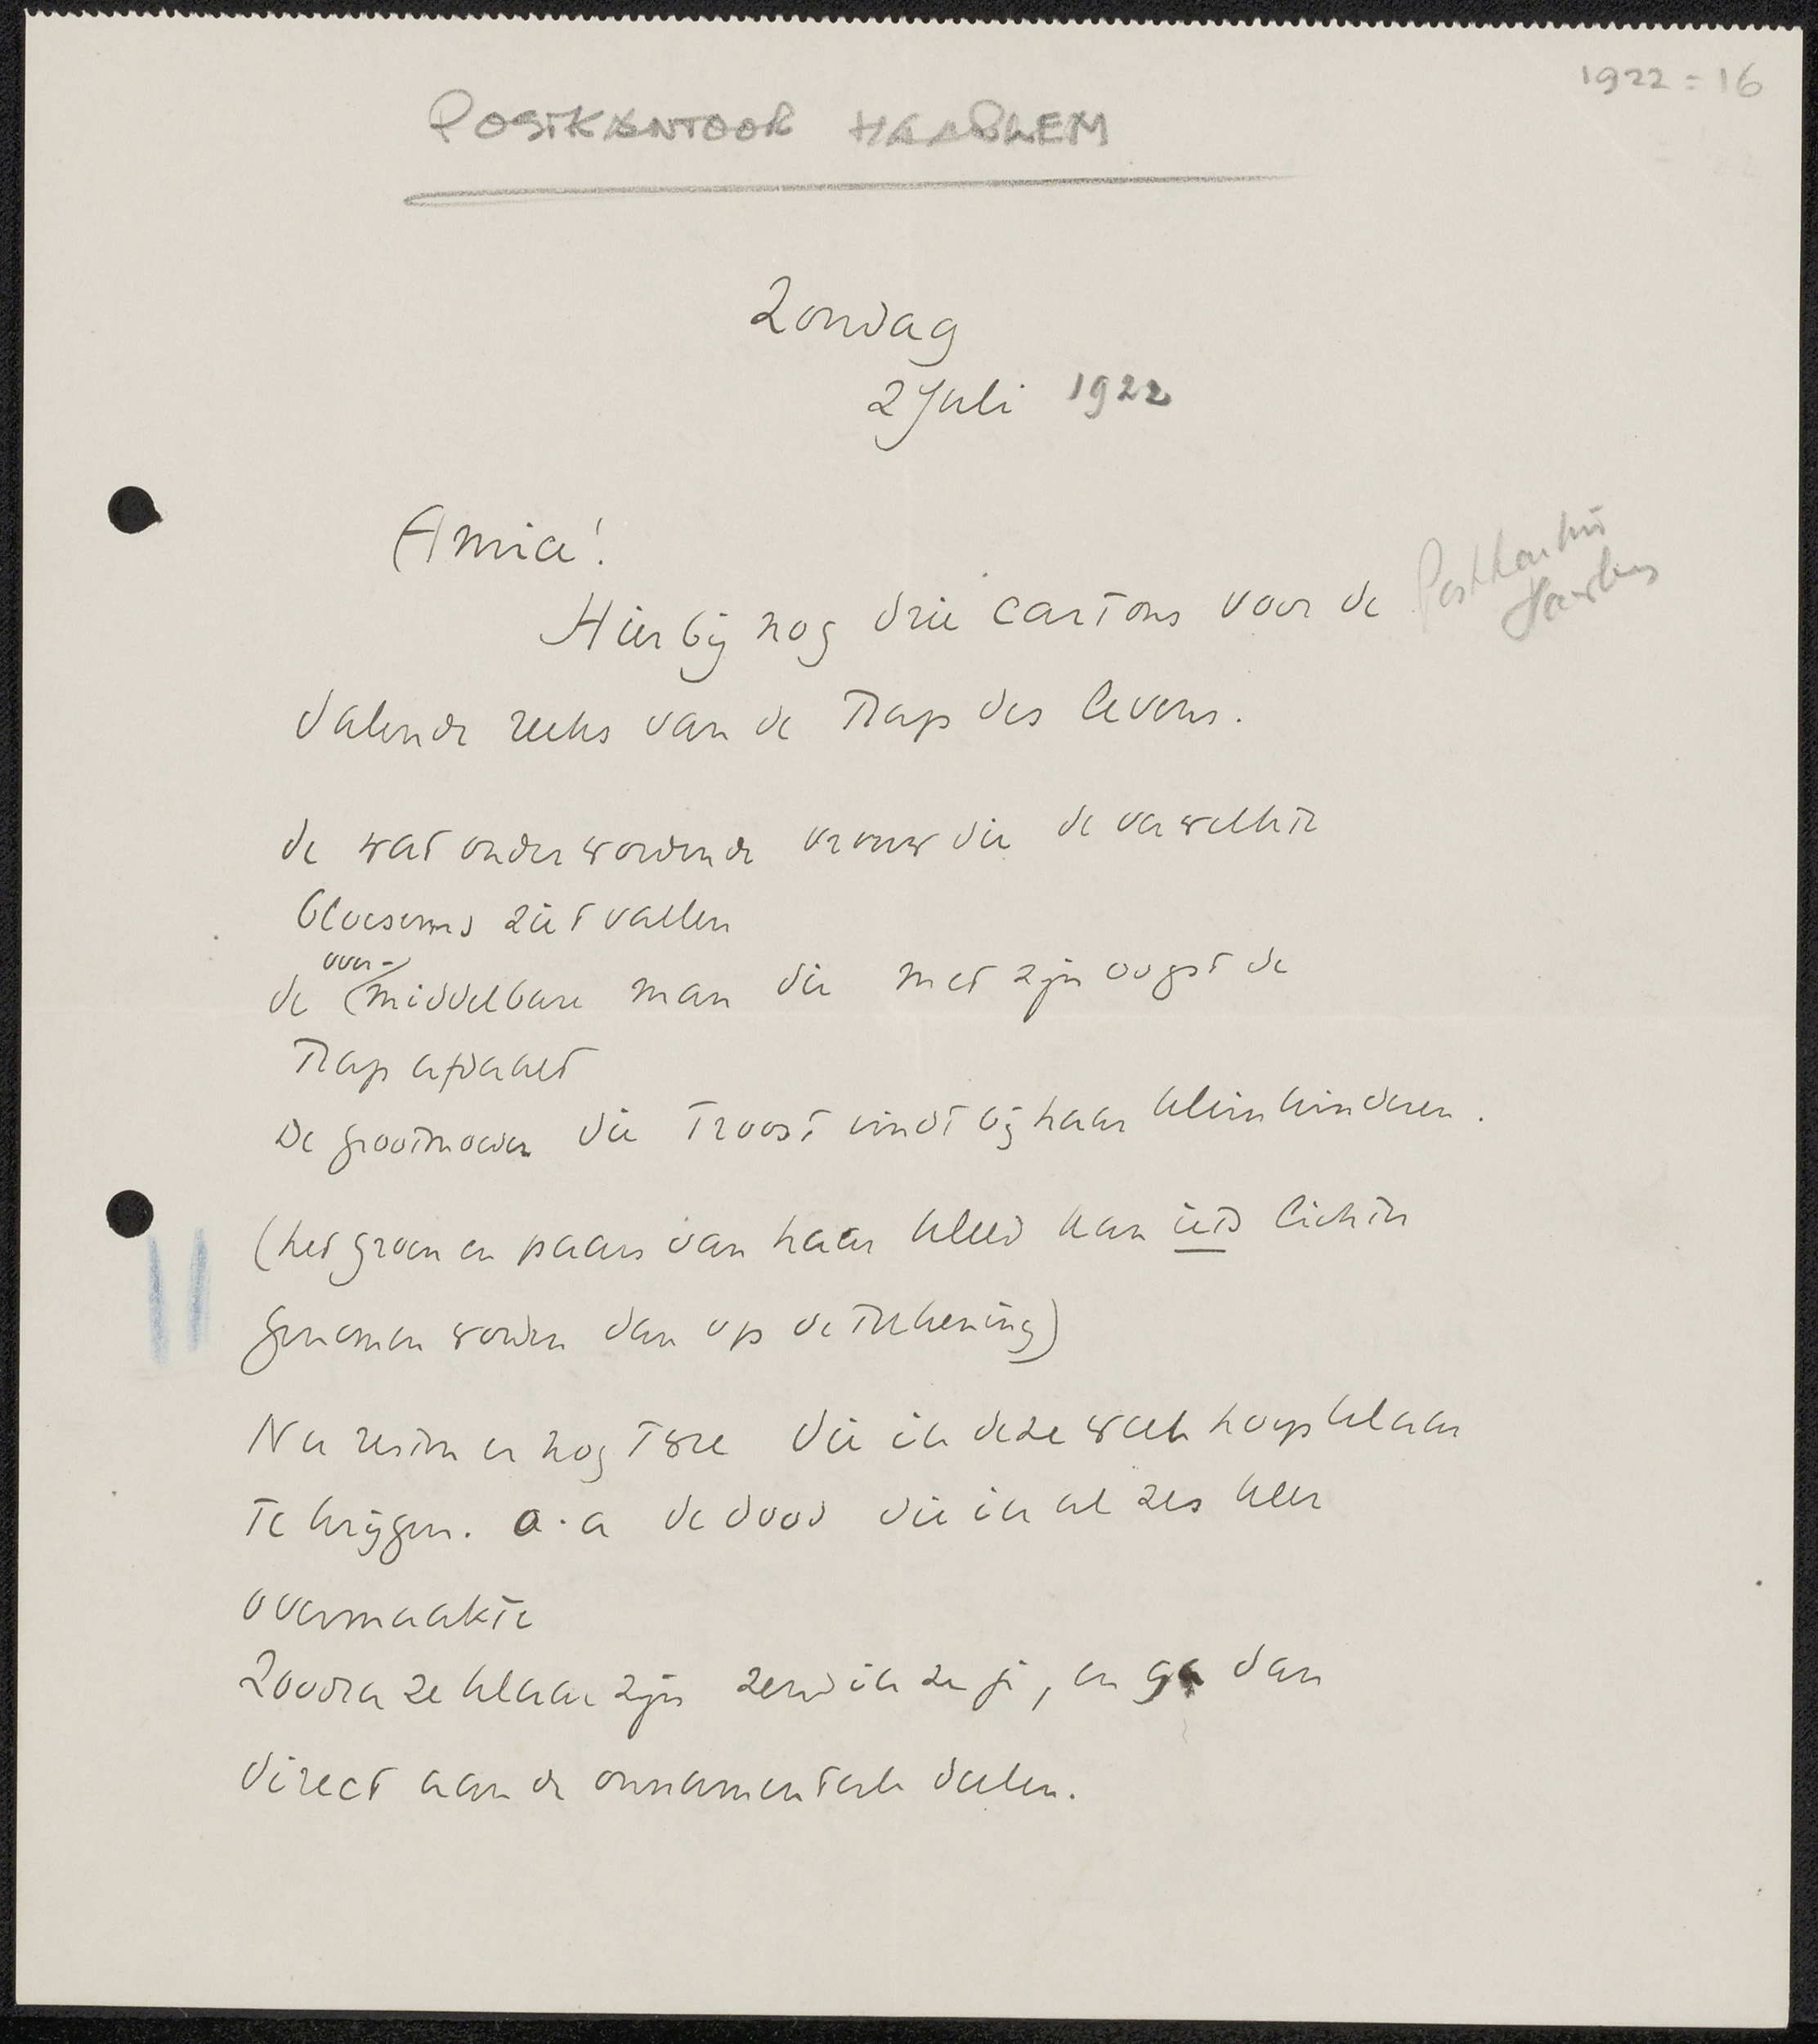 1922 = 16
POSTKANTOOR HAARLEM
Zondag
2 Juli 1922
Amice!
Hierbij nog drie cartons voor de
Postkantoor
Haarlem
dalende reeks van de Trap des levens.
de wat ouder wordende vrouw die de verwelkte
bloesems ziet vallen
over-
de middelbare man die met zijn oogst de
Trap afdaalt
De grootmoeder die Troost vindt bij haar kleinkinderen.
(het groen en paars van haar kleed kan iets lichter
genomen worden dan op de Teekening)
Nu resten er nog Twee die ik deze week hoop klaar
Te krijgen. o.a de dood die ik al zes keer
overmaakte
Zoodra ze klaar zijn zend ik ze je, en ga dan
direct aan de ornamentale deelen.